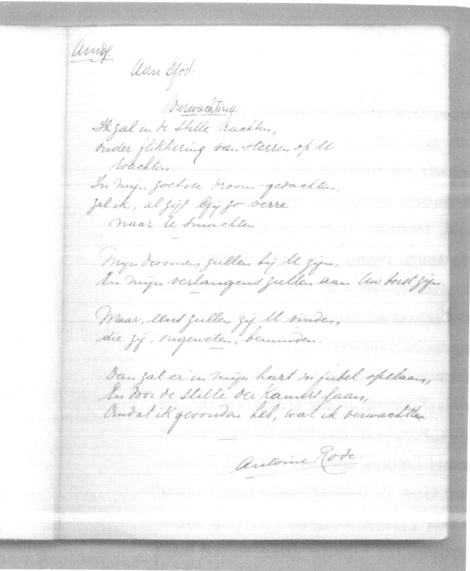 Aan God.
Verwachting
Ik zal in de stille nachten,
onder flikkering van sterren op U
wachten.
In mijn zoetste droom-gedachten,
zal ik, al zijt Gij zo verre
naar U smachten
Mijn droomen zullen bij U zijn.
En mijn verlangens zullen aan Uw borst zijn.
Maar, eens zullen zij U vinden,
die zij, ongeweten, beminden.
Dan zal er in mijn hart 'n jubel opslaan,
En door de stilte der Kamers gaan,
Omdat ik gevonden heb, wat ik verwachtte
Antoine Rode.